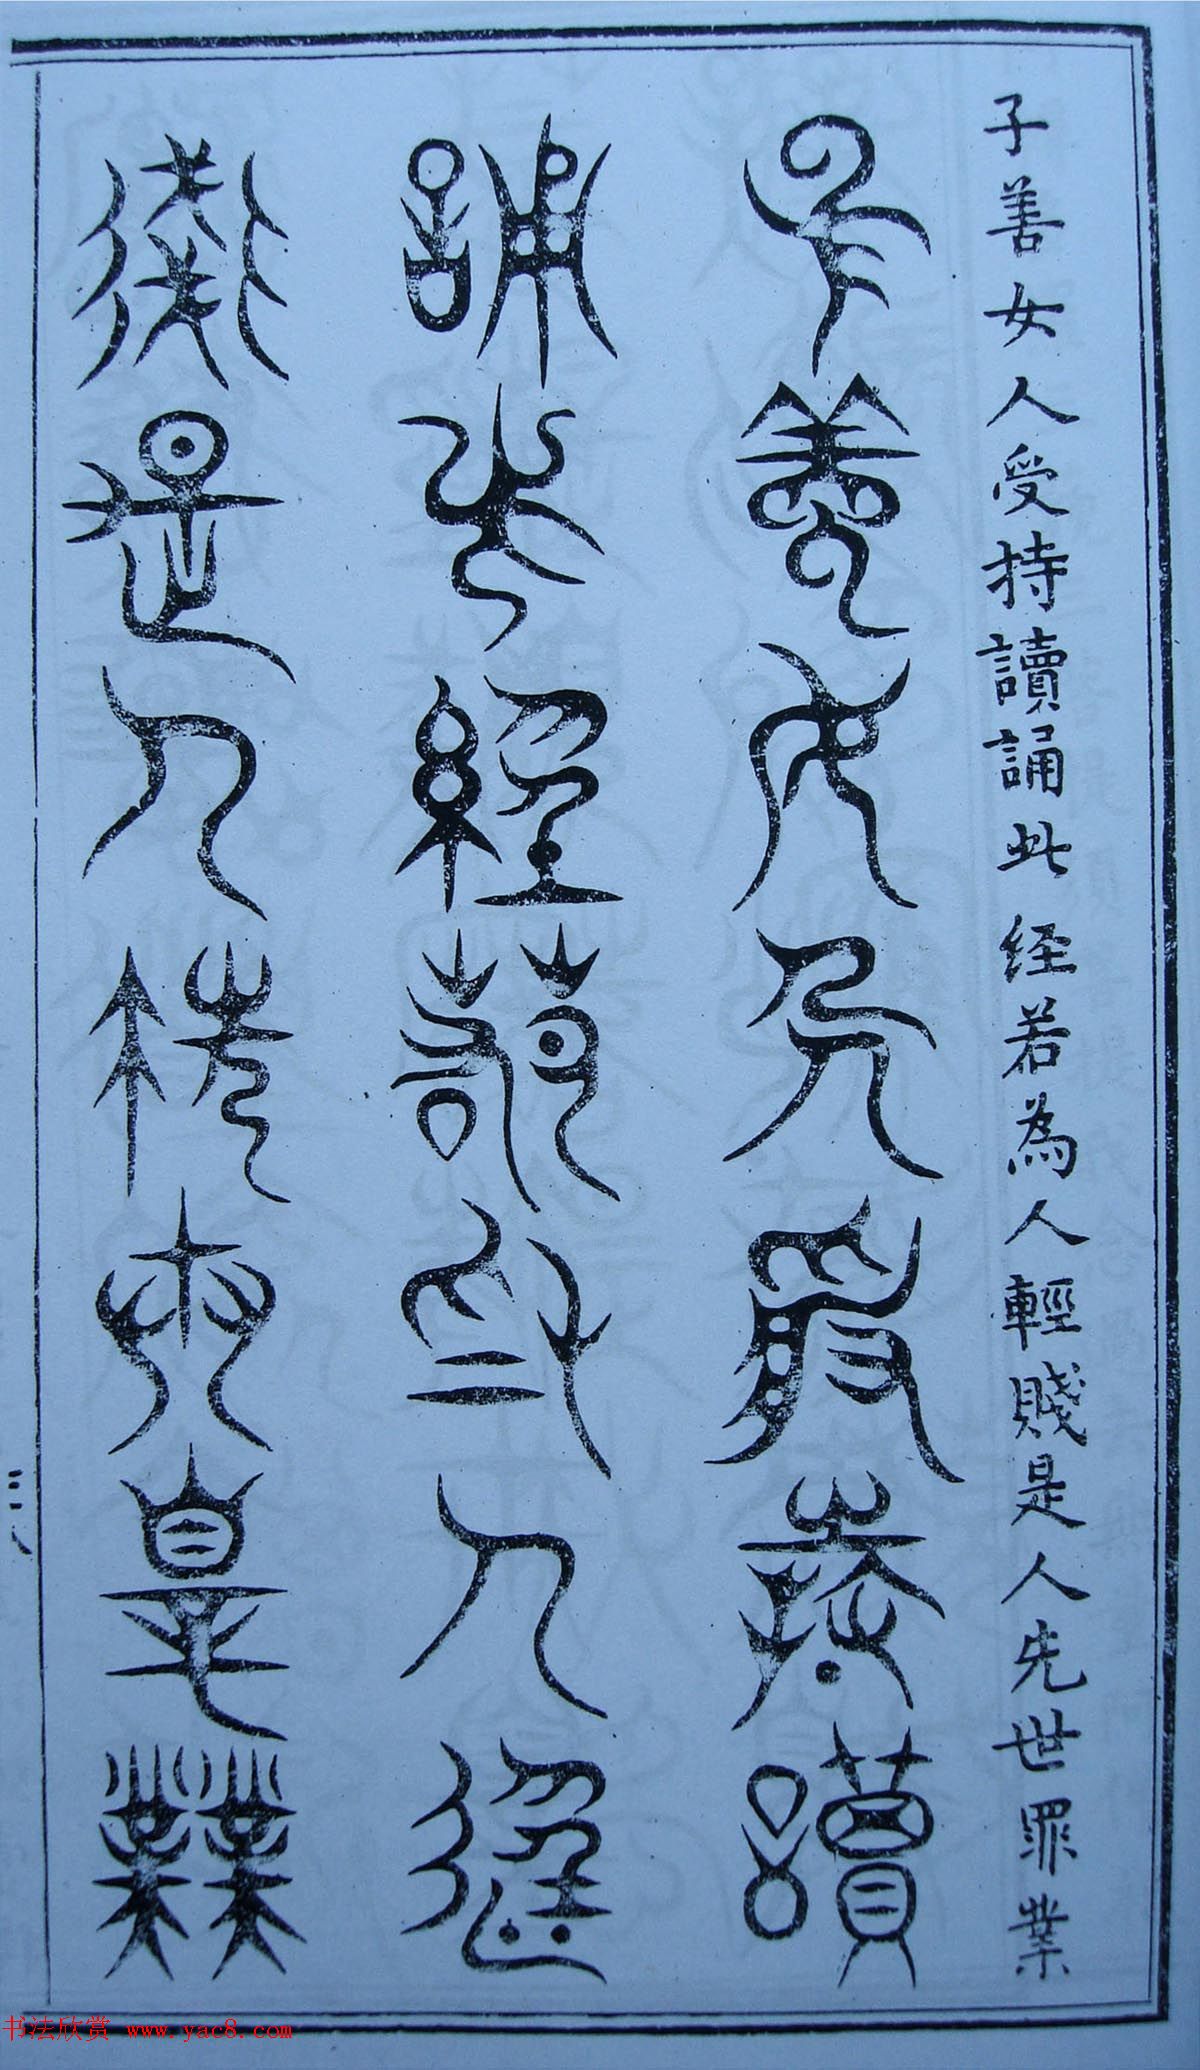 子善女人受持讀誦此经若為人輕賤是人先世罪業
子善女人受持讀
誦此經若為人輕
賤是人先世罪業
三八
书法欣赏 www.yac8.com